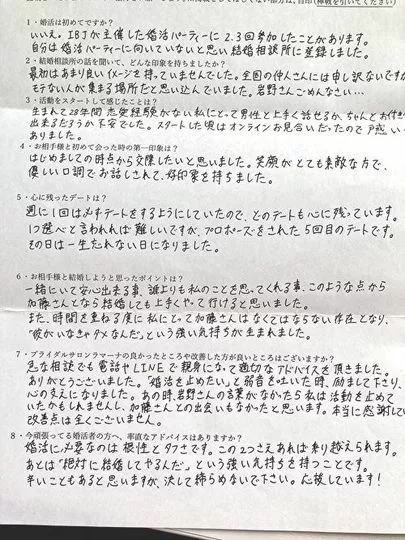 1・婚活は初めてですか？
いいえ。IBJが主催した婚活パーティーに2.3回参加したことがあります。
自分は婚活パーティーに向いていないと思い結婚相談所に登録しました。
2・結婚相談所の話を聞いて、どんな印象を持ちましたか？
最初はあまり良いイメージを持っていませんでした。全国の仲人さんには申し訳ないですが
モテない人が集まる場所だと思い込んでいました。岩野さんごめんなさい…
3・活動をスタートして感じたことは？
生まれて28年間 恋愛経験がない私にとって男性と上手く話せるか、ちゃんとお付き
出来るだろうか不安でした。スタートした頃はオンラインお見合いだったので戸惑い
ありました。
4・お相手様と初めて会った時の第一印象は？
はじめましての時点から交際したいと思いました。笑顔がとても素敵な方で、
優しい口調でお話しされて、好印象を持ちました。
5・心に残ったデートは？
週に1回は必ずデートをするようにしていたので、どのデートも心に残っています。
1つ選べと言われれば難しいですが、プロポーズをされた5回目のデートです。
その日は一生忘れない日になりました。
6・お相手様と結婚しようと思ったポイントは？
一緒にいて安心出来る事、誰よりも私のことを思ってくれる事、このような点から
加藤さんとなら結婚しても上手くやって行けると思いました。
また、時間を重ねる度に私にとって加藤さんはなくてはならない存在となり、
"彼がいなきゃダメなんだ"という強い気持ちが生まれました。
7・ブライダルサロンラマーナの良かったところや改善した方が良いところはございますか？
急な相談でも電話やLINEで親身になって適切なアドバイスを頂きました。
ありがとうございました。"婚活を止めたい"と弱音を吐いた時、励まして下さり、
心の支えになりました。あの時、岩野さんの言葉がなかったら私は活動を止めて
いたかもしれませんし、加藤さんとの出会いもなかったと思います。本当に感謝してい
改善点は全くございません。
8・今頑張ってる婚活者の方へ、率直なアドバイスはありますか？
婚活に必要なのは根性とタフさです。この2つさえあれば乗り越えられます。
あとは"絶対に結婚してやるんだ"という強い気持ちを持つことです。
辛いこともあると思いますが、決して諦めないで下さい。応援しています！